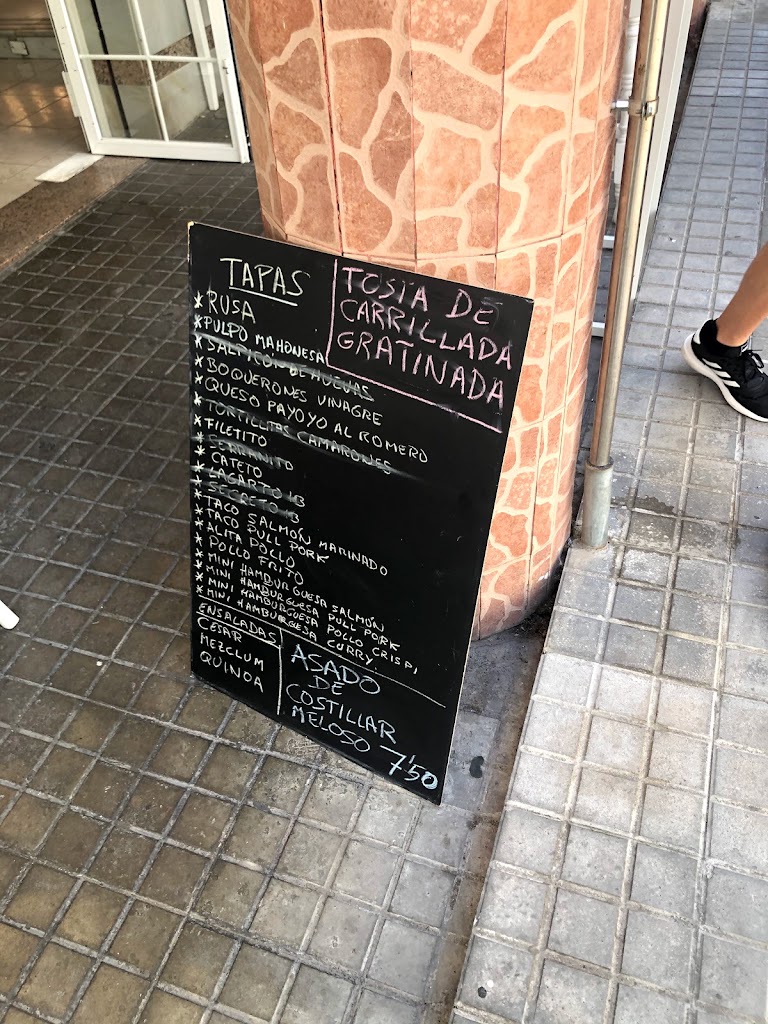 TAPAS
* RUSA
* PULPO MAHONESA
* SALPICÓN DE HUEVAS
* BOQUERONES VINAGRE
* QUESO PAYOYO AL ROMERO
* TORTILLITAS CAMARONES
* FILETITO
* SERRANITO
* CATETO
* LAGARTO IB
* SECRETO IB
* TACO SALMÓN MARINADO
* TACO PULL PORK
* ALITA POLLO
* POLLO FRITO
* MINI HAMBURGUESA SALMÓN
* MINI HAMBURGUESA PULL PORK
* MINI HAMBURGUESA POLLO CRISPI
* MINI HAMBURGUESA CURRY
TOSTA DE
CARRILLADA
GRATINADA
ENSALADAS
CESAR
MEZCLUM
QUINOA
ASADO
DE
COSTILLAR
MELOSO 7'50